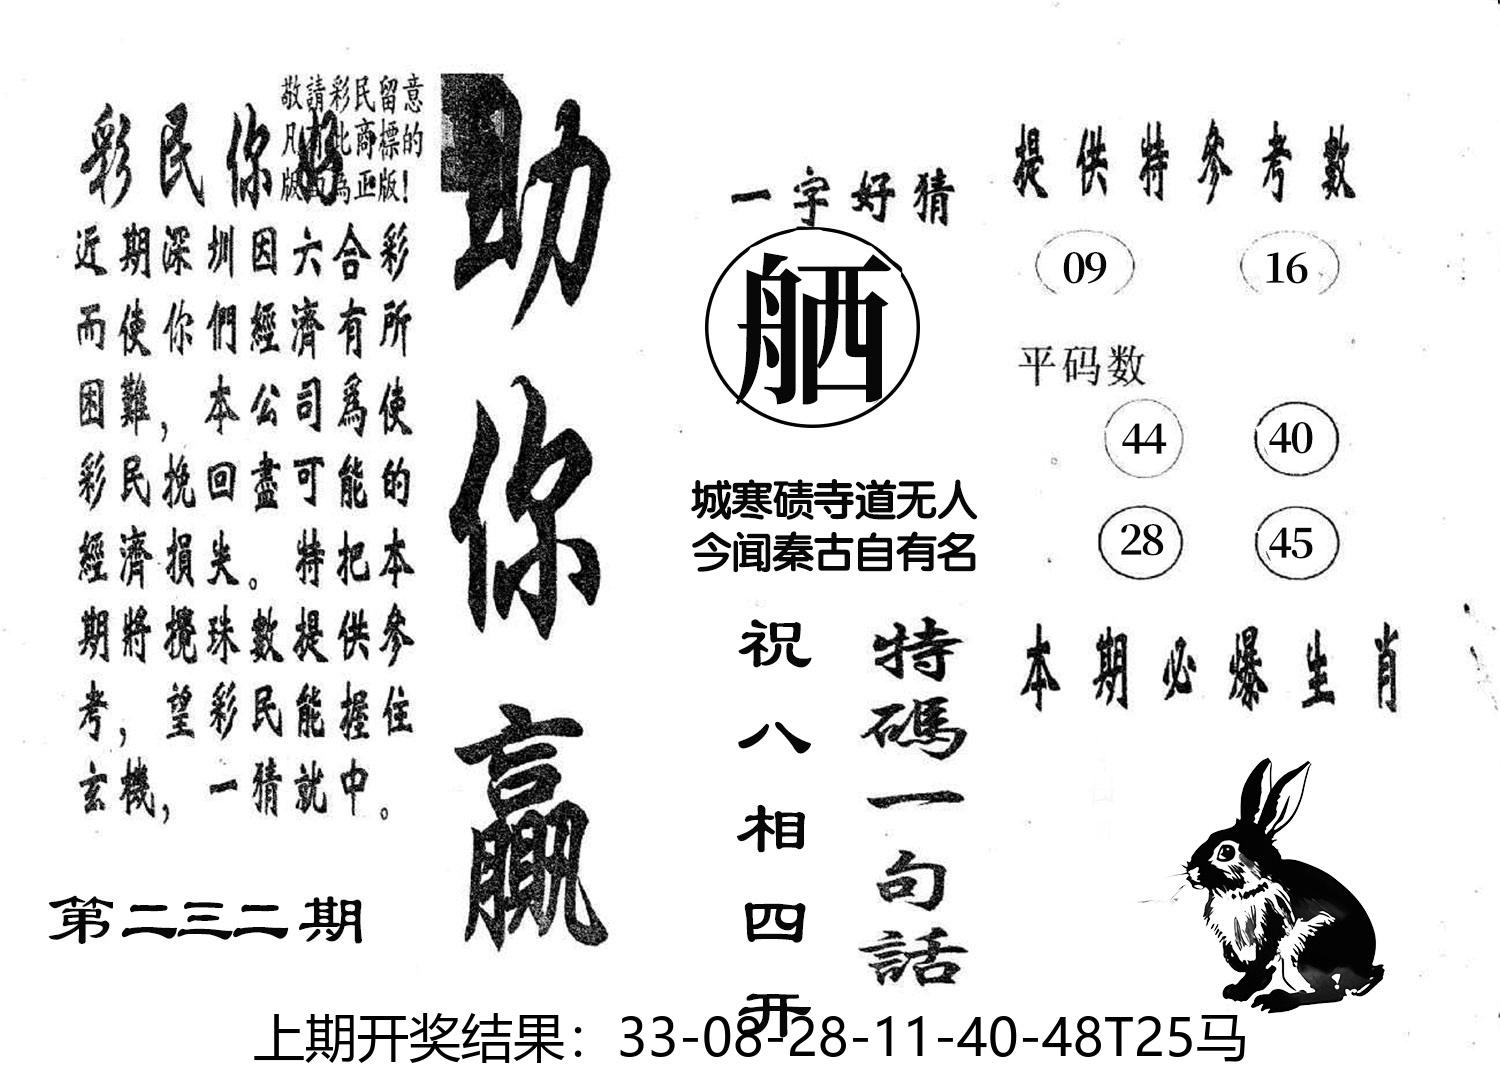 敬請彩民留意
凡有此商標的
版面為正版!
彩民你好
近期深圳因六合彩
而使你們經濟有所
困難，本公司爲使
彩民挽回盡可能的
經濟損失。特把本
期將攪珠數提供參
考，望彩民能握住
玄機，一猜就中。
第二三二期
助你贏
一字好猜
舾
城寒碛寺道无人
今闻秦古自有名
特碼一句話
祝八相四开
提供特參考數
09 16
平码数
44 40
28 45
本期必爆生肖
上期开奖结果：33-08-28-11-40-48T25马